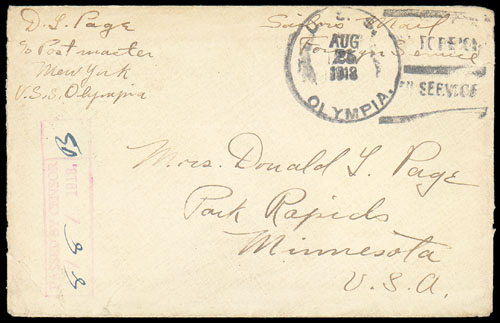 D. L. Page
c/o Postmaster
New York
U.S.S. Olympia
Sailors Mail
Foreign Service
U.S.S.
AUG
25
1918
OLYMPIA.
FOREIGN
SERVICE
Mrs. Donald L. Page
Park Rapids
Minnesota
U.S.A.
PASSED BY CENSOR
1918